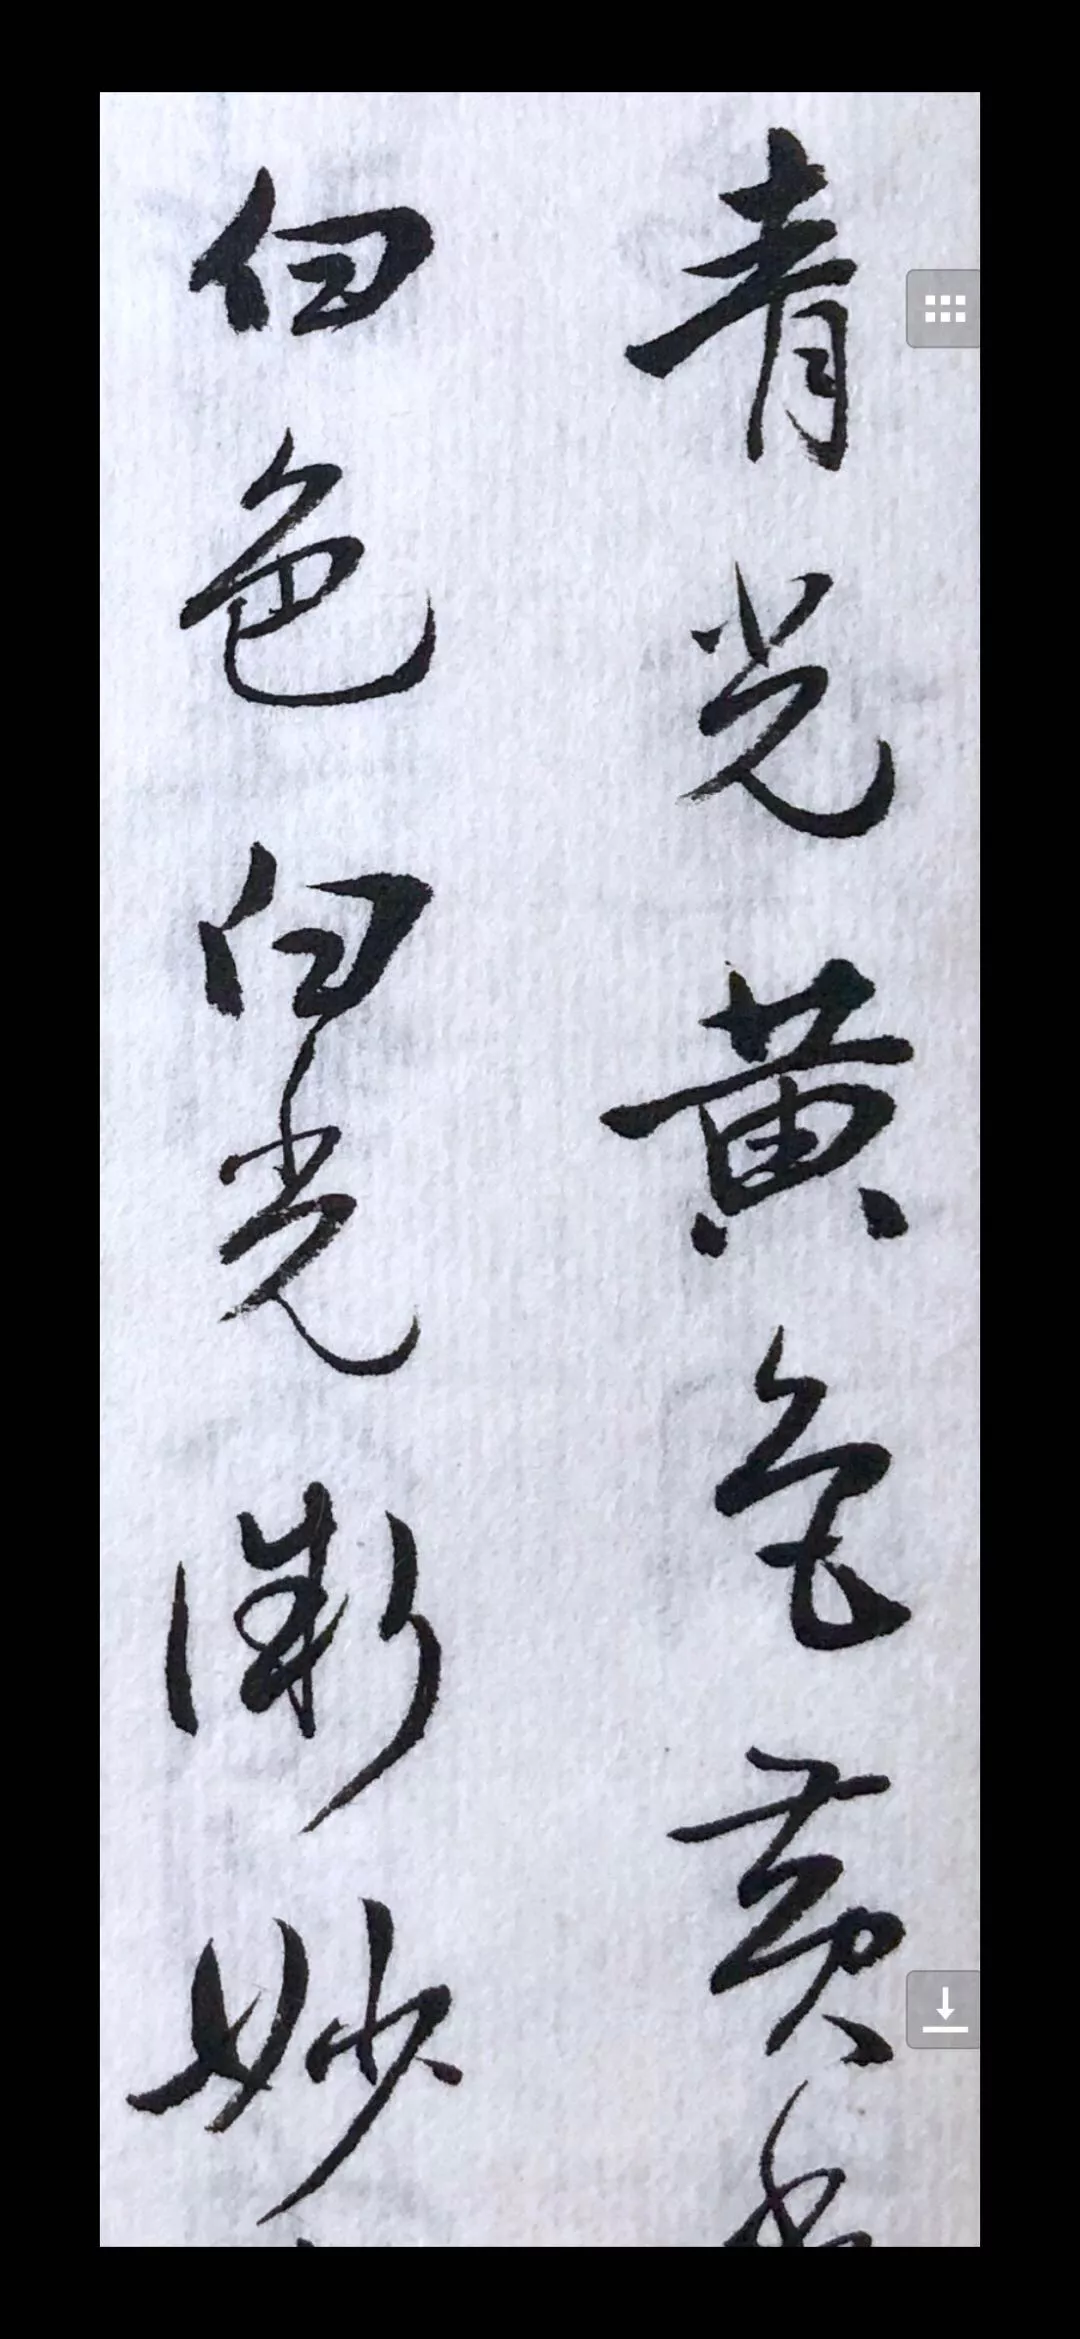 青光黄色黄光
白色白光微妙